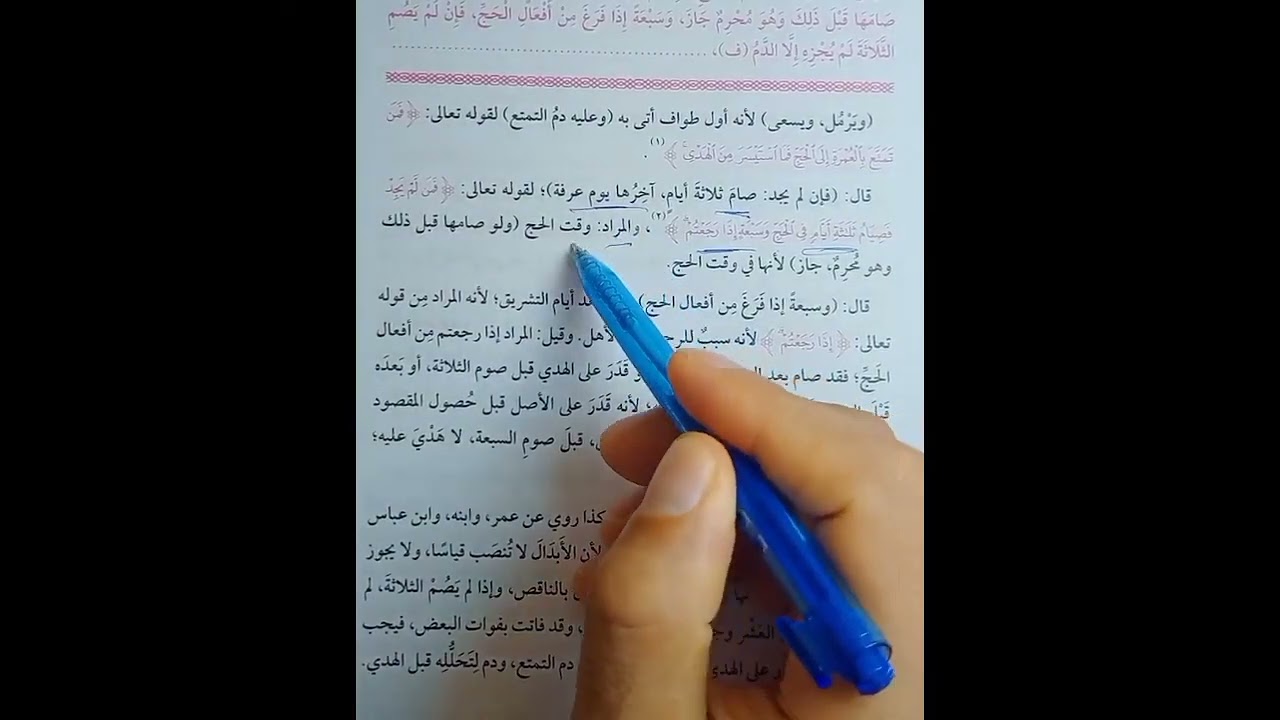 صَامَهَا قَبْلَ ذَلِكَ وَهُوَ مُحْرِمٌ جَازَ، وَسَبْعَةً إِذَا فَرَغَ مِنْ أَفْعَالِ الْحَجِّ، فَإِنْ لَمْ يَصُمِ
الثَّلَاثَةَ لَمْ يُجْزِهِ إِلَّا الدَّمُ (ف)،
(ويَرْمُل، ويسعى) لأنه أول طواف أتى به (وعليه دمُ التمتع) لقوله تعالى: ﴿فَمَن
تَمَتَّعَ بِالْعُمْرَةِ إِلَى الْحَجِّ فَمَا اسْتَيْسَرَ مِنَ الْهَدْيِ﴾(١).
قال: (فإن لم يجد: صامَ ثلاثةَ أيام، آخِرُها يوم عرفة)؛ لقوله تعالى: ﴿فَمَن لَّمْ يَجِدْ
فَصِيَامُ ثَلَاثَةِ أَيَّامٍ فِي الْحَجِّ وَسَبْعَةٍ إِذَا رَجَعْتُمْ﴾(٢)، والمراد: وقت الحج (ولو صامها قبل ذلك
وهو مُحرِمٌ، جاز) لأنها في وقت الحج.
قال: (وسبعةً إذا فَرَغَ مِن أفعال الحج) أيام التشريق؛ لأنه المراد مِن قوله
تعالى: ﴿إِذَا رَجَعْتُمْ﴾ لأنه سببٌ وقيل: المراد إذا رجعتم مِن أفعال
الحَجِّ؛ فقد صام بعد قَدَرَ على الهدي قبل صوم الثلاثة، أو بَعدَه
قَبْلَ لأنه قَدَرَ على الأصل قبل حُصول المقصود
قبلَ صومِ السبعة، لا هَدْيَ عليه؛
كذا روي عن عمر، وابنه، وابن عباس
لأن الأَبدَالَ لا تُنصَب قياسًا، ولا يجوز
بالناقص، وإذا لم يَصُمْ الثلاثةَ، لم
العَشْر وقد فاتت بفوات البعض، فيجب
على الهدي دم التمتع، ودم لِتَحَلُّلِه قبل الهدي.